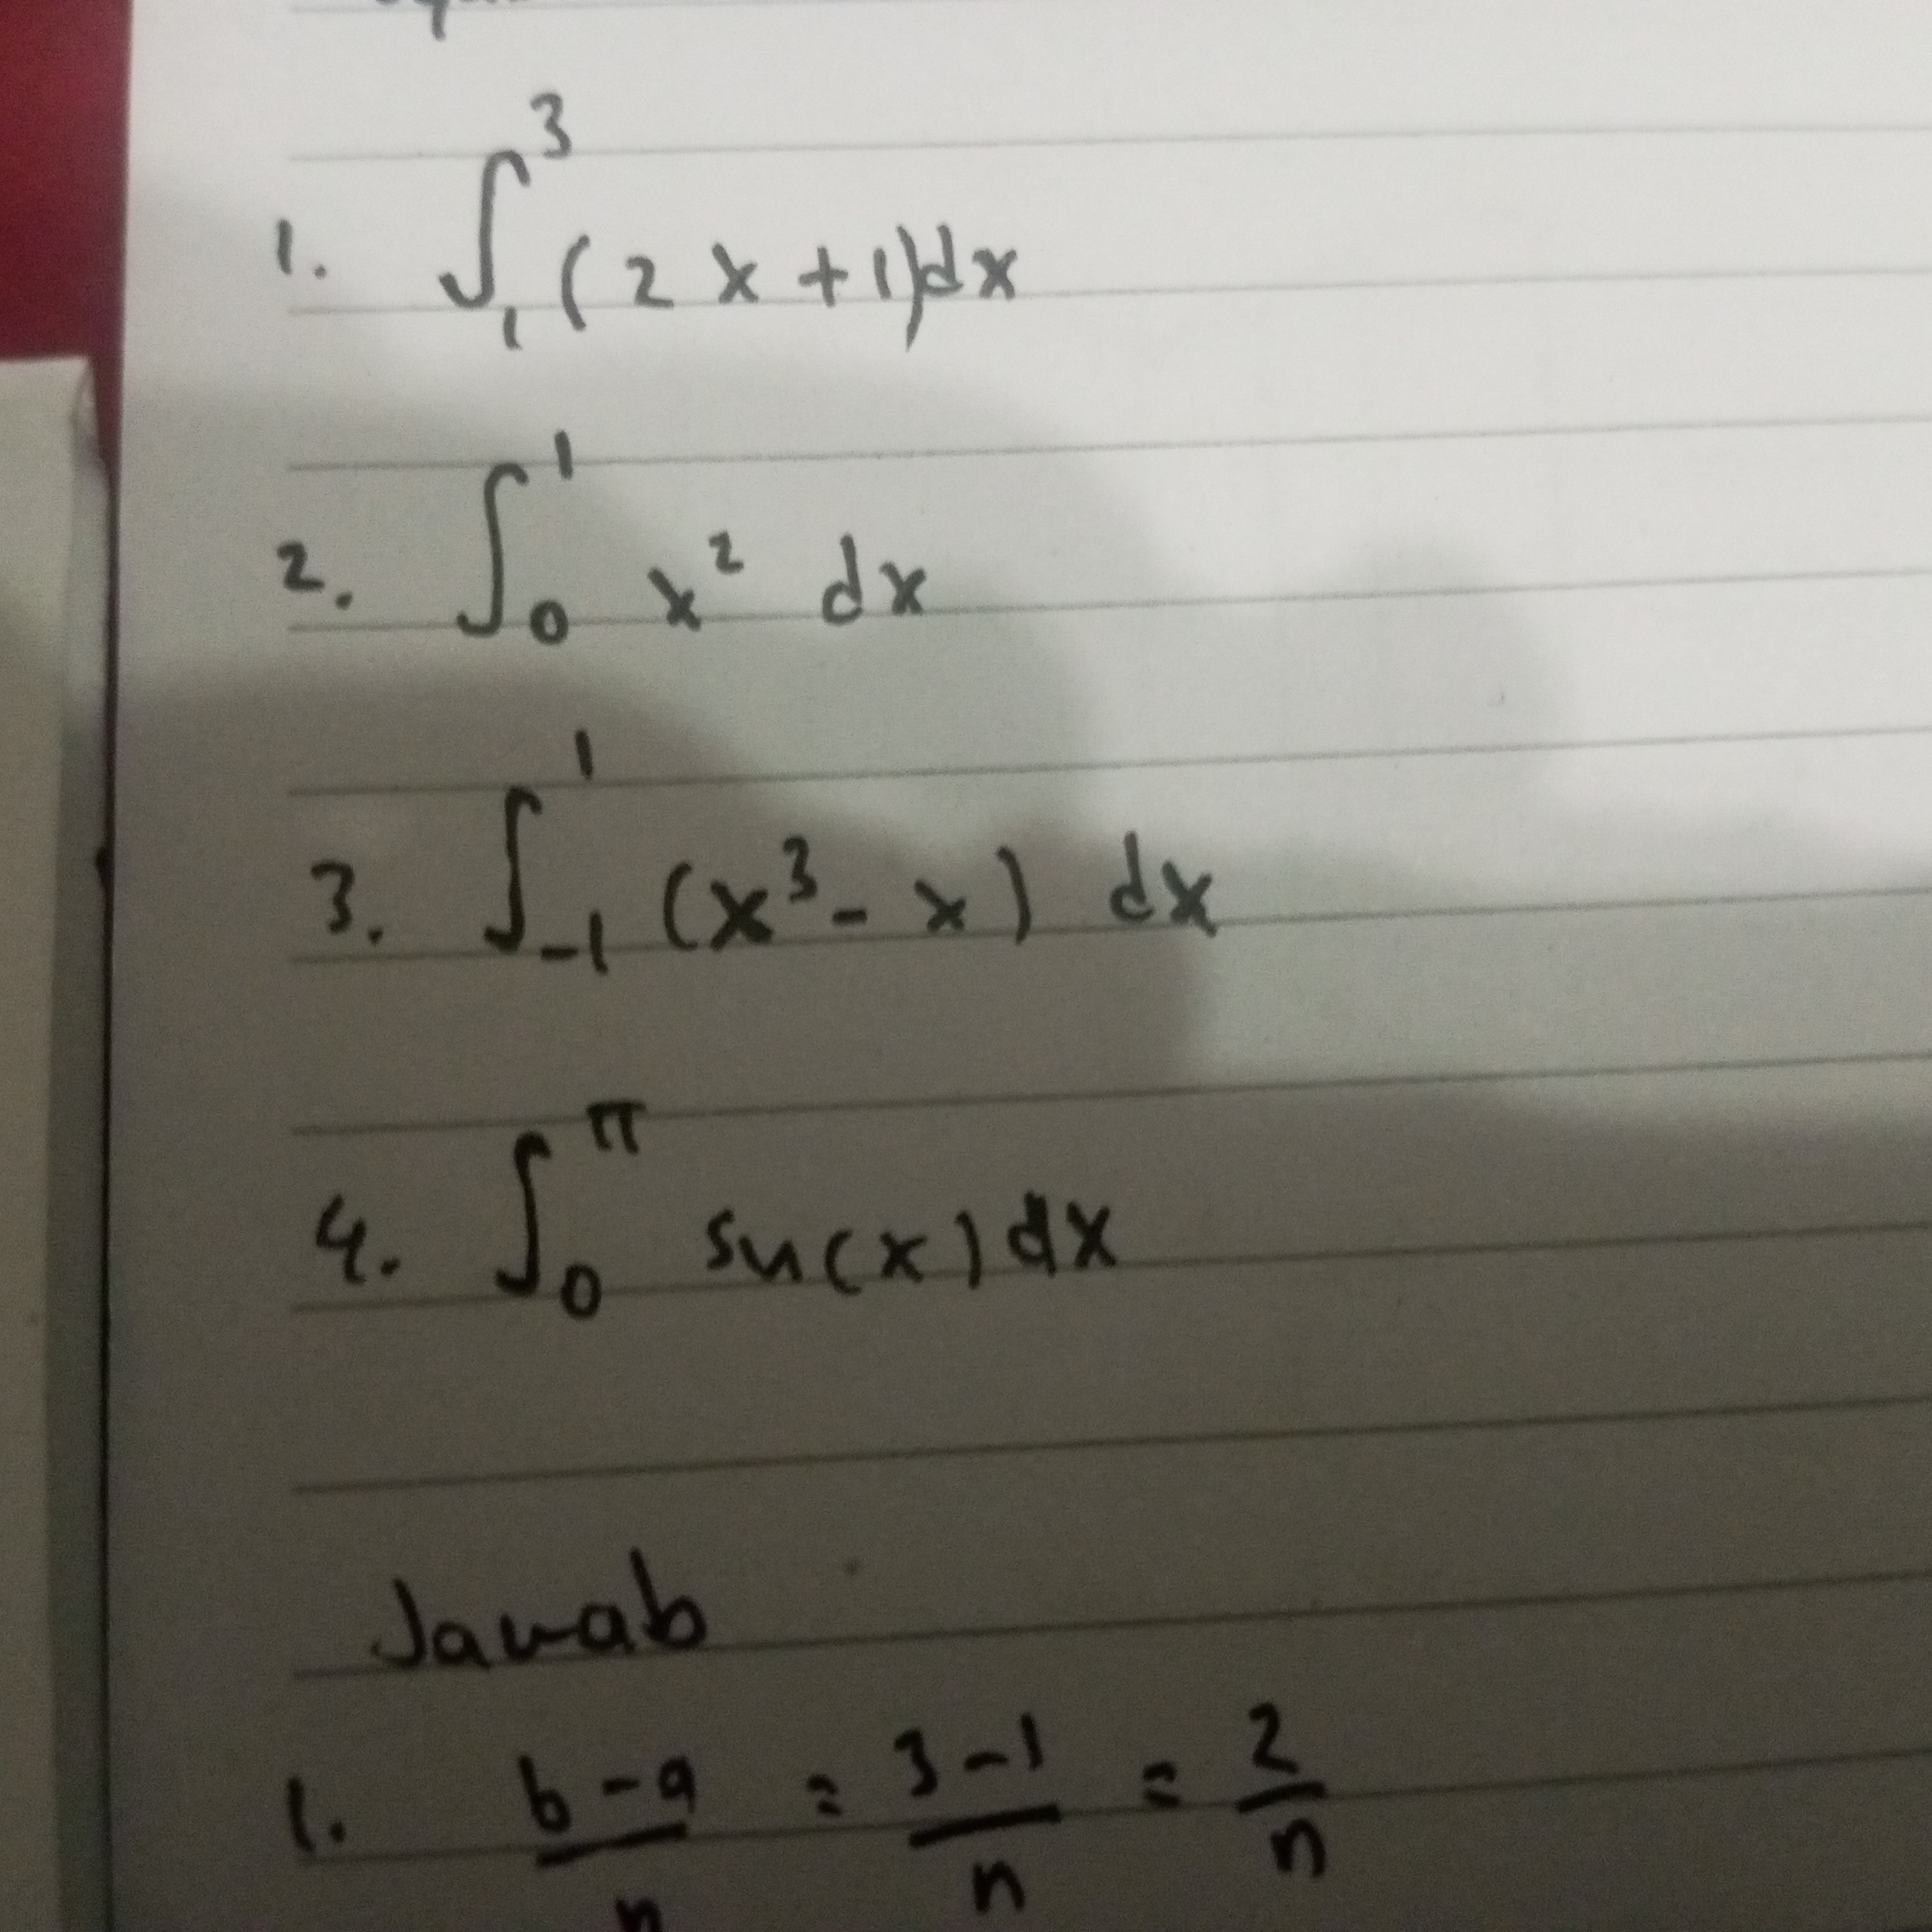 1. ∫₁³ (2x+1)dx
2. ∫₀¹ x² dx
3. ∫₋₁¹ (x³-x) dx
4. ∫₀^π sin(x)dx
Jawab
1. b-a/n = 3-1/n = 2/n